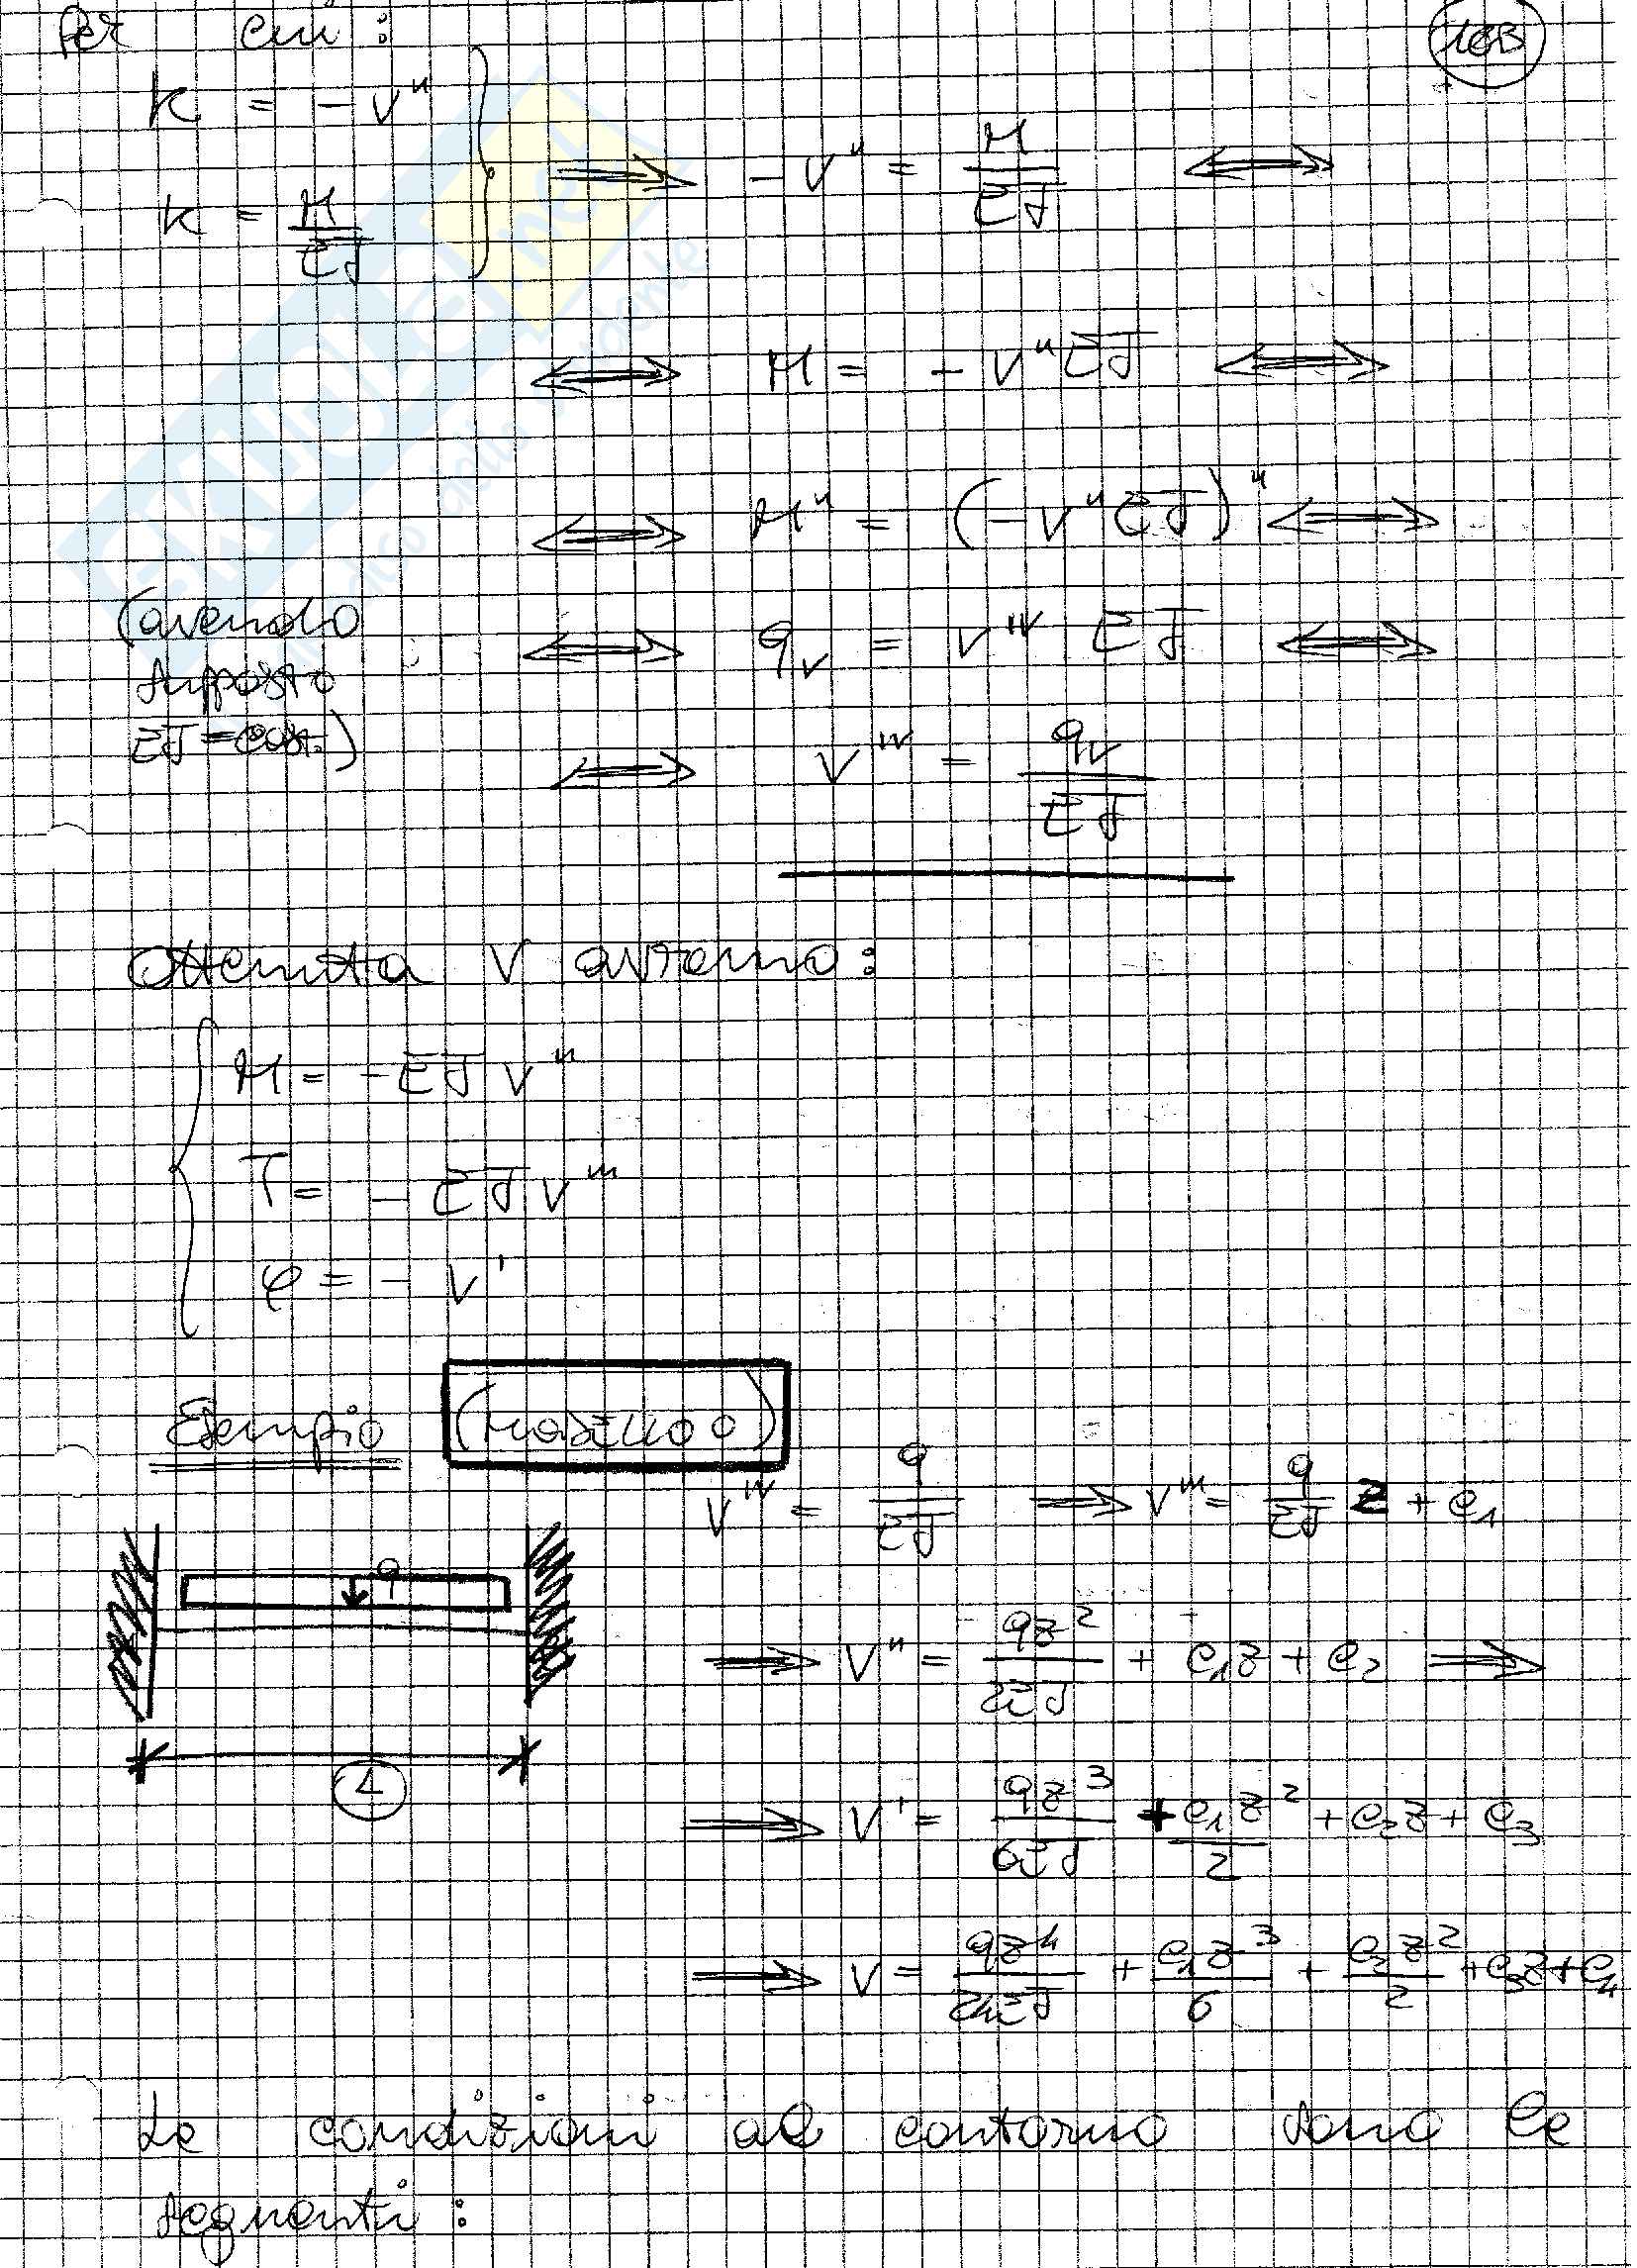 Per cui:
16B
K = - v''
K = M/EJ
⟹ - v'' = M/EJ ⟺
⟺ M = - v'' EJ ⟺
⟺ M'' = (- v'' EJ)'' ⟺
(avendo
supposto
EJ = cost.)
⟺ qv = v^IV EJ ⟺
⟺ v^IV = qv/EJ
Ottenuta v avremo:
M = - EJ v''
T = - EJ v'''
φ = - v'
Esempio (MODELLO 0)
v^IV = q/EJ ⟹ v''' = q/EJ z + c1
q
L
⟹ v'' = qz²/2EJ + c1z + c2 ⟹
⟹ v' = qz³/6EJ + c1z²/2 + c2z + c3
⟹ v = qz⁴/24EJ + c1z³/6 + c2z²/2 + c3z + c4
Le condizioni al contorno sono le
seguenti: